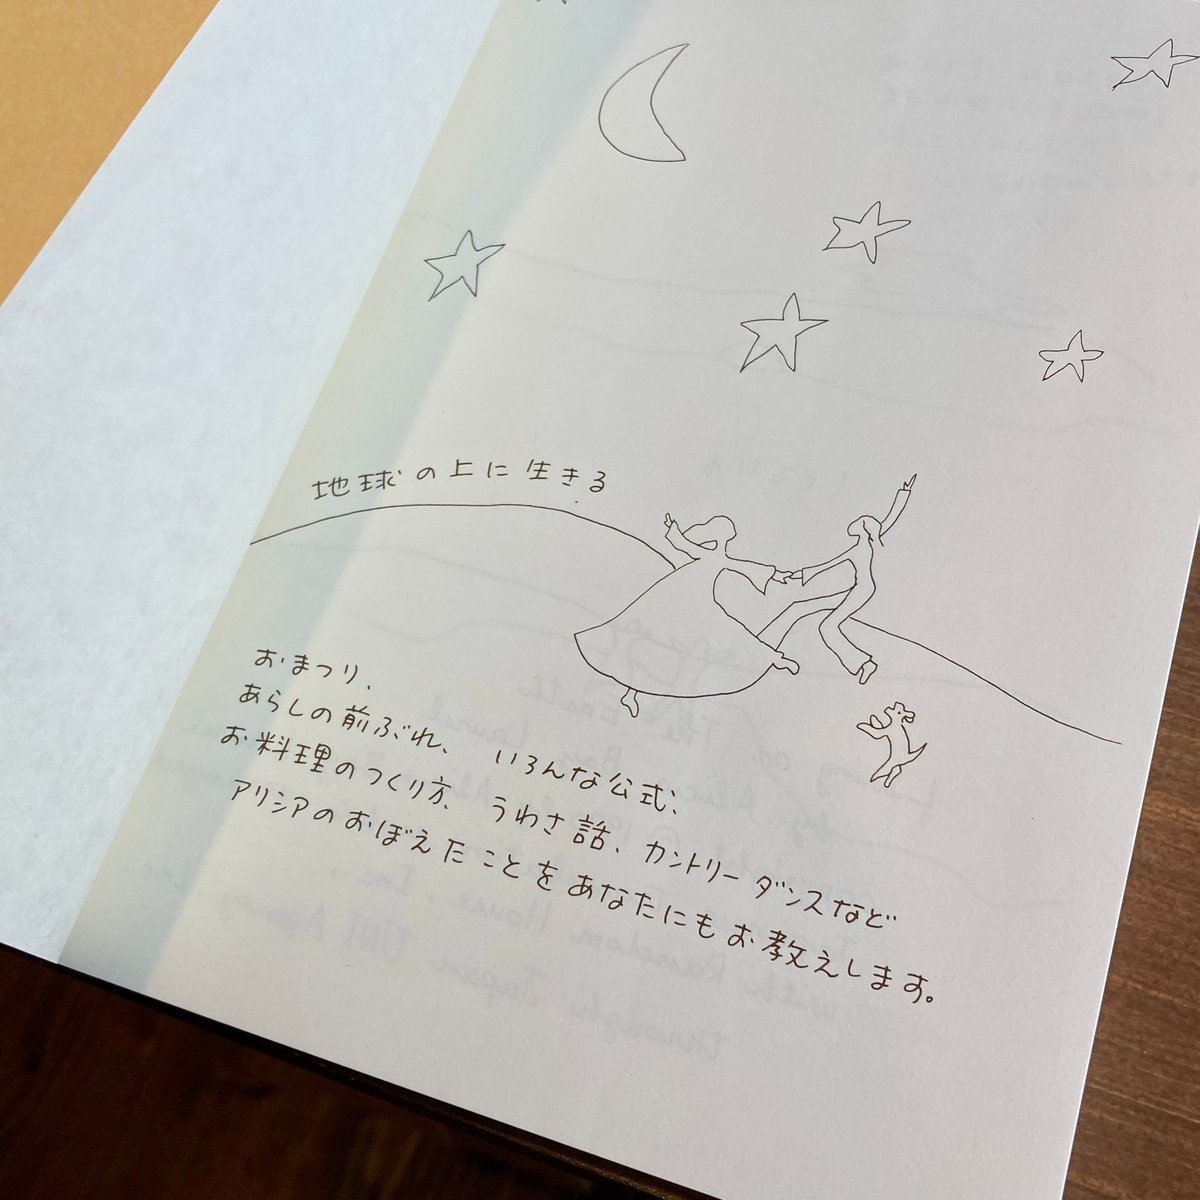 地球の上に生きる
おまつり、
あらしの前ぶれ、いろんな公式、
お料理のつくり方、うわさ話、カントリーダンスなど
アリシアのおぼえたことをあなたにもお教えします。